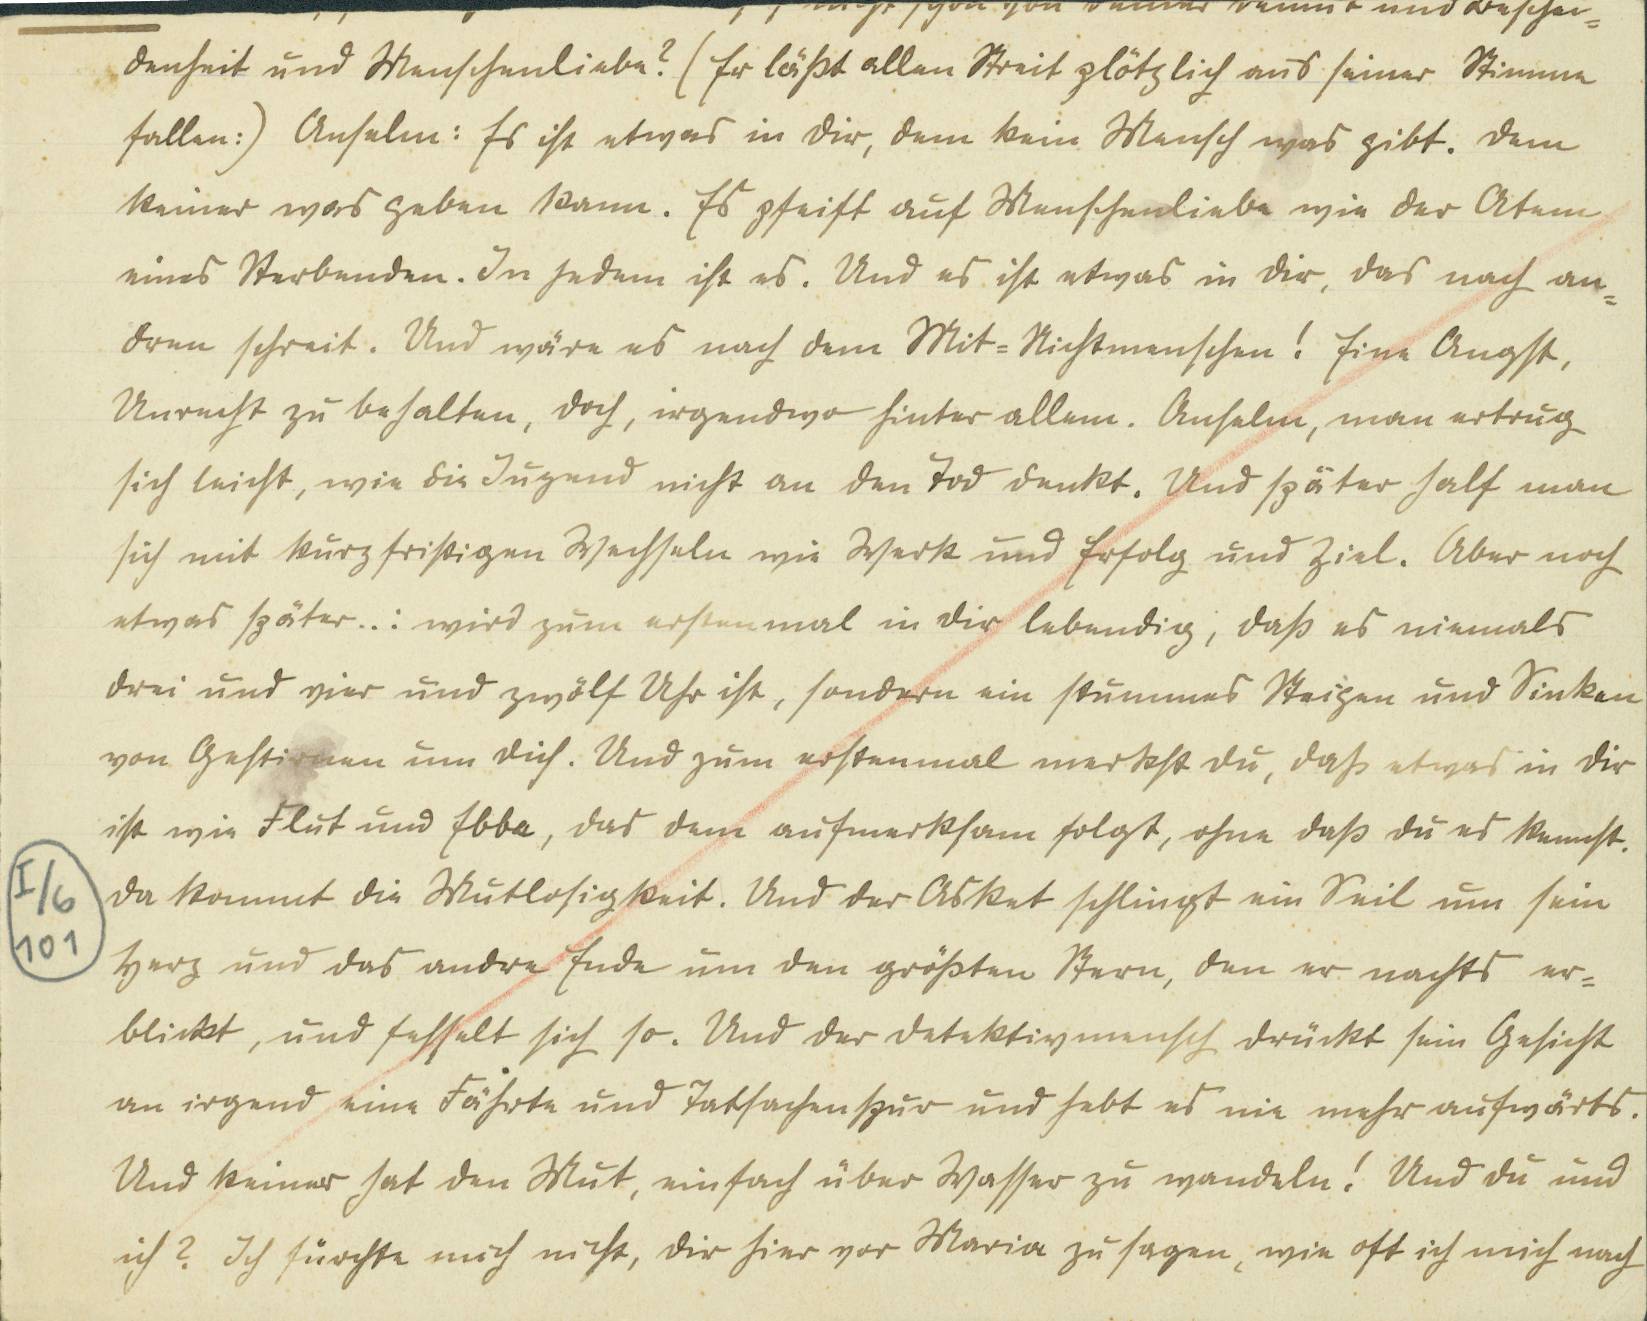 nicht schon von deiner Demut und Beschei=
denheit und Menschenliebe? (Er läßt allen Streit plötzlich aus seiner Stimme
fallen:) Anselm: Es ist etwas in dir, dem kein Mensch was gibt. Dem
keiner was geben kann. Es pfeift auf Menschenliebe wie der Atem
eines Sterbenden. In jedem ist es. Und es ist etwas in dir, das nach an=
dren schreit. Und wäre es nach dem Mit=Nichtmenschen! Eine Angst,
Unrecht zu behalten, doch, irgendwo hinter allem. Anselm, man ertrug
sich leicht, wie die Jugend nicht an den Tod denkt. Und später half man
sich mit kurzfristigen Wechseln wie Werk und Erfolg und Ziel. Aber noch
etwas später..: wird zum erstenmal in dir lebendig, daß es niemals
drei und vier und zwölf Uhr ist, sondern ein stummes Steigen und Sinken
von Gestirnen um dich. Und zum erstenmal merkst du, daß etwas in dir
ist wie Flut und Ebbe, das dem aufmerksam folgt, ohne daß du es kennst.
Da kommt die Mutlosigkeit. Und der Asket schlingt ein Seil um sein
I/6
101
Herz und das andre Ende um den größten Stern, den er nachts er=
blickt, und fesselt sich so. Und der Detektivmensch drückt sein Gesicht
an irgend eine Fährte und Tatsachenspur und hebt es nie mehr aufwärts.
Und keiner hat den Mut, einfach über Wasser zu wandeln! Und du und
ich? Ich fürchte mich nicht, dir hier vor Maria zu sagen, wie oft ich mich nach